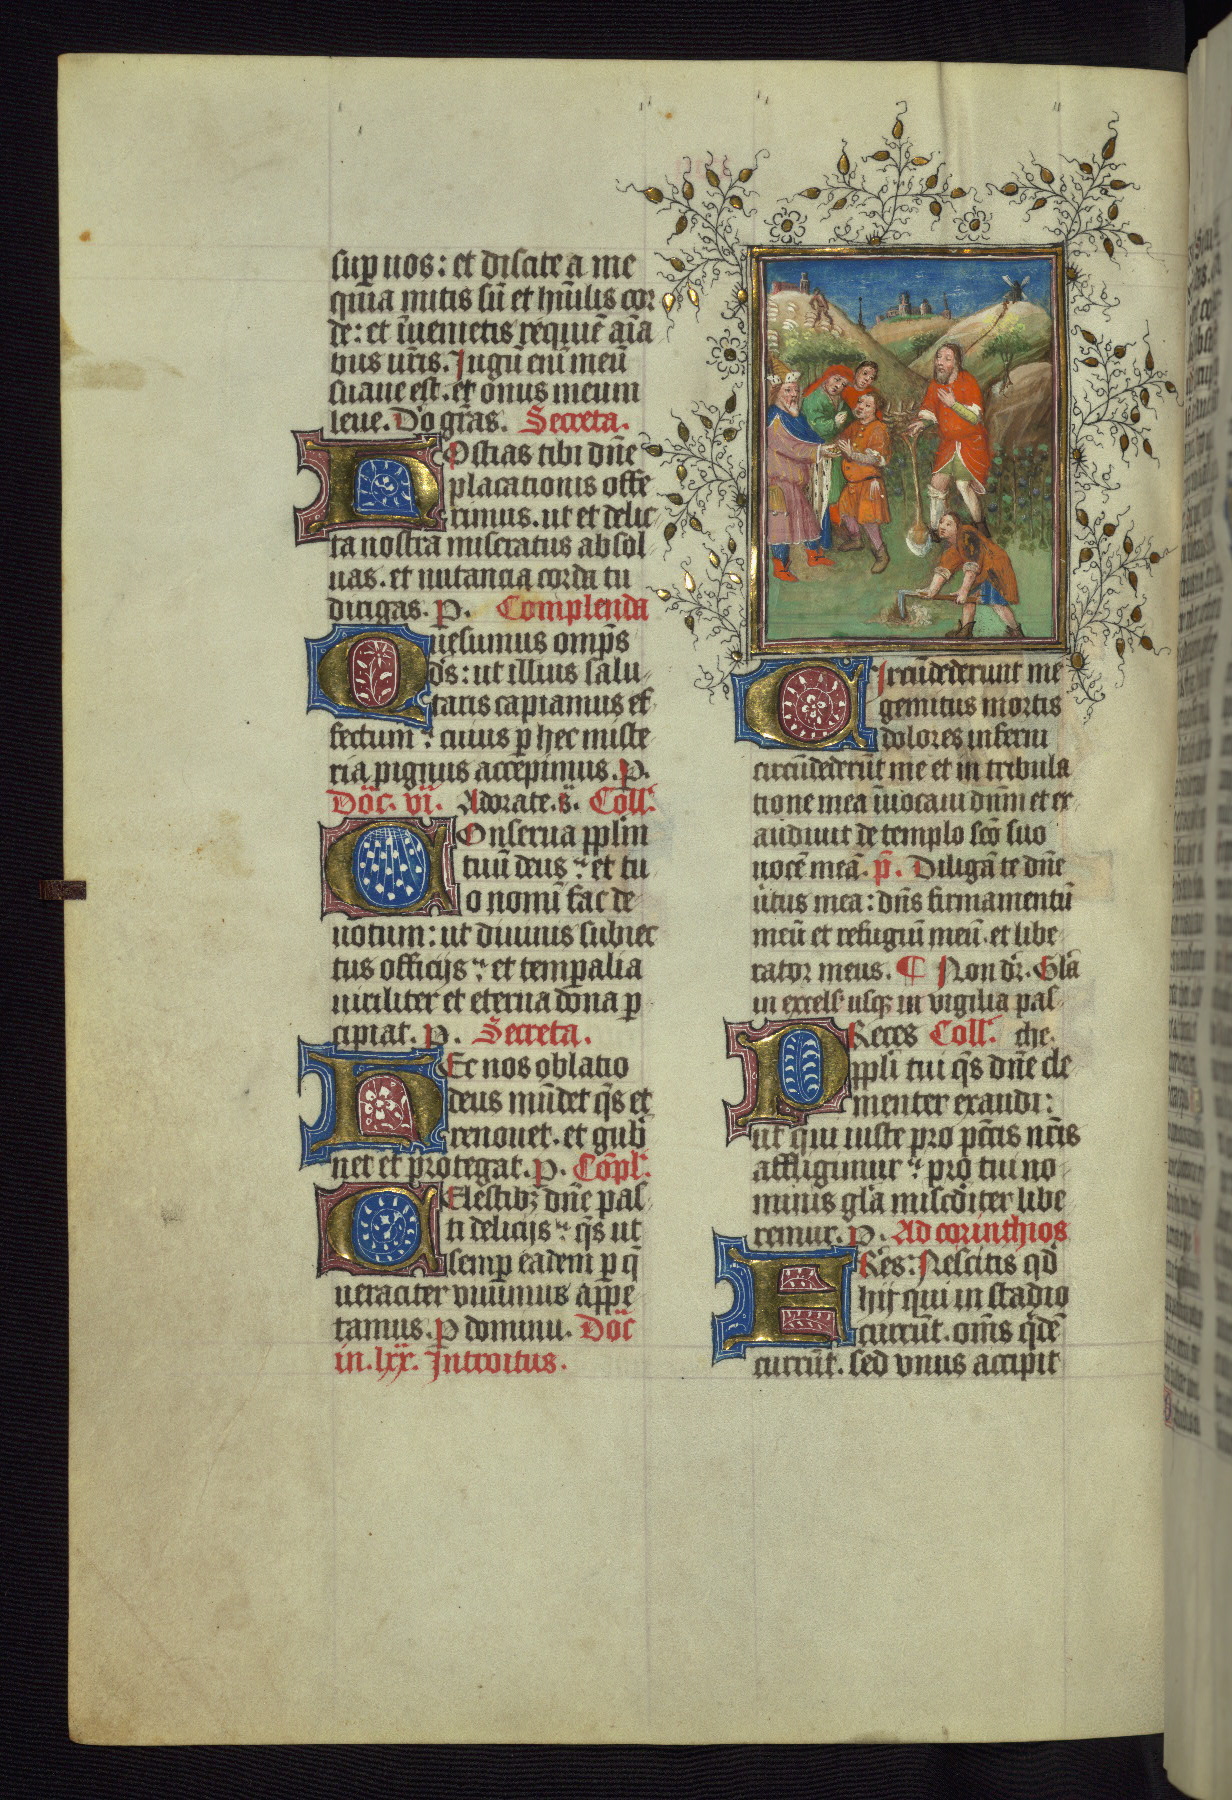 sup̱ uos: et discite a me
quia mitis sū et hūilis cor
de: et īuenietis requiē aīa
bus ur̄is. Jugū enī meū
suaue est. et onus meum
leue. Do gr̄as. Secreta.
Hostias tibi dn̄e
placationis offe
rimus. ut et delic
ta nostra miseratus absol
uas. et nutancia corda tu
dirigas. P. Complenda
Quesumus omp̄s
ds̄: ut illius salu
taris capiamus ef
fectum: cuius p̱ hec miste
ria pignus accepimus. p.
Doc̄. vi. Adorate. Coll̄.
Conserua pp̄lm
tuū deus: et tu
o nomī fac de
uotum: ut diuinis subiec
tus officijs: et temp̱alia
uiriliter et eterna dona p̱
cipiat. p. Secreta.
Hec nos oblatio
deus mūdet qs̄ et
renouet. et gub̄
net et protegat. p. Cōpl̄.
Celestibꝫ dn̄e pas
ti delicijs: qs̄ ut
semp̱ eadem p̱ q̄
ueraciter viuimus appe
tamus. p dominū. Doc̄
in. lxx. Introitus.
Circūdederunt me
gemitus mortis
dolores inferni
circūdederūt me et in tribula
tione mea īuocaui dn̄m et ex
audiuit de templo sc̄o suo
uocē meā. p̄. Diligā te dn̄e
uirtus mea: dn̄s firmamentū
meū et refugiū meū. et libe
rator meus. ¶ Non dr̄. Gl̄a
in excels̄ usqꝫ in vigilia pas
Preces Coll̄. che.
pp̄li tui qs̄ dn̄e cle
menter exaudi:
ut qui iuste pro pc̄tis nr̄is
affligimur: pro tui no
minis gl̄a mis̄cditer libe
remur. p. Ad corinthios
FRēs: Nescitis qd̄
hij qui in stadio
currūt. om̄s qdē
currūt. sed vnus accipit